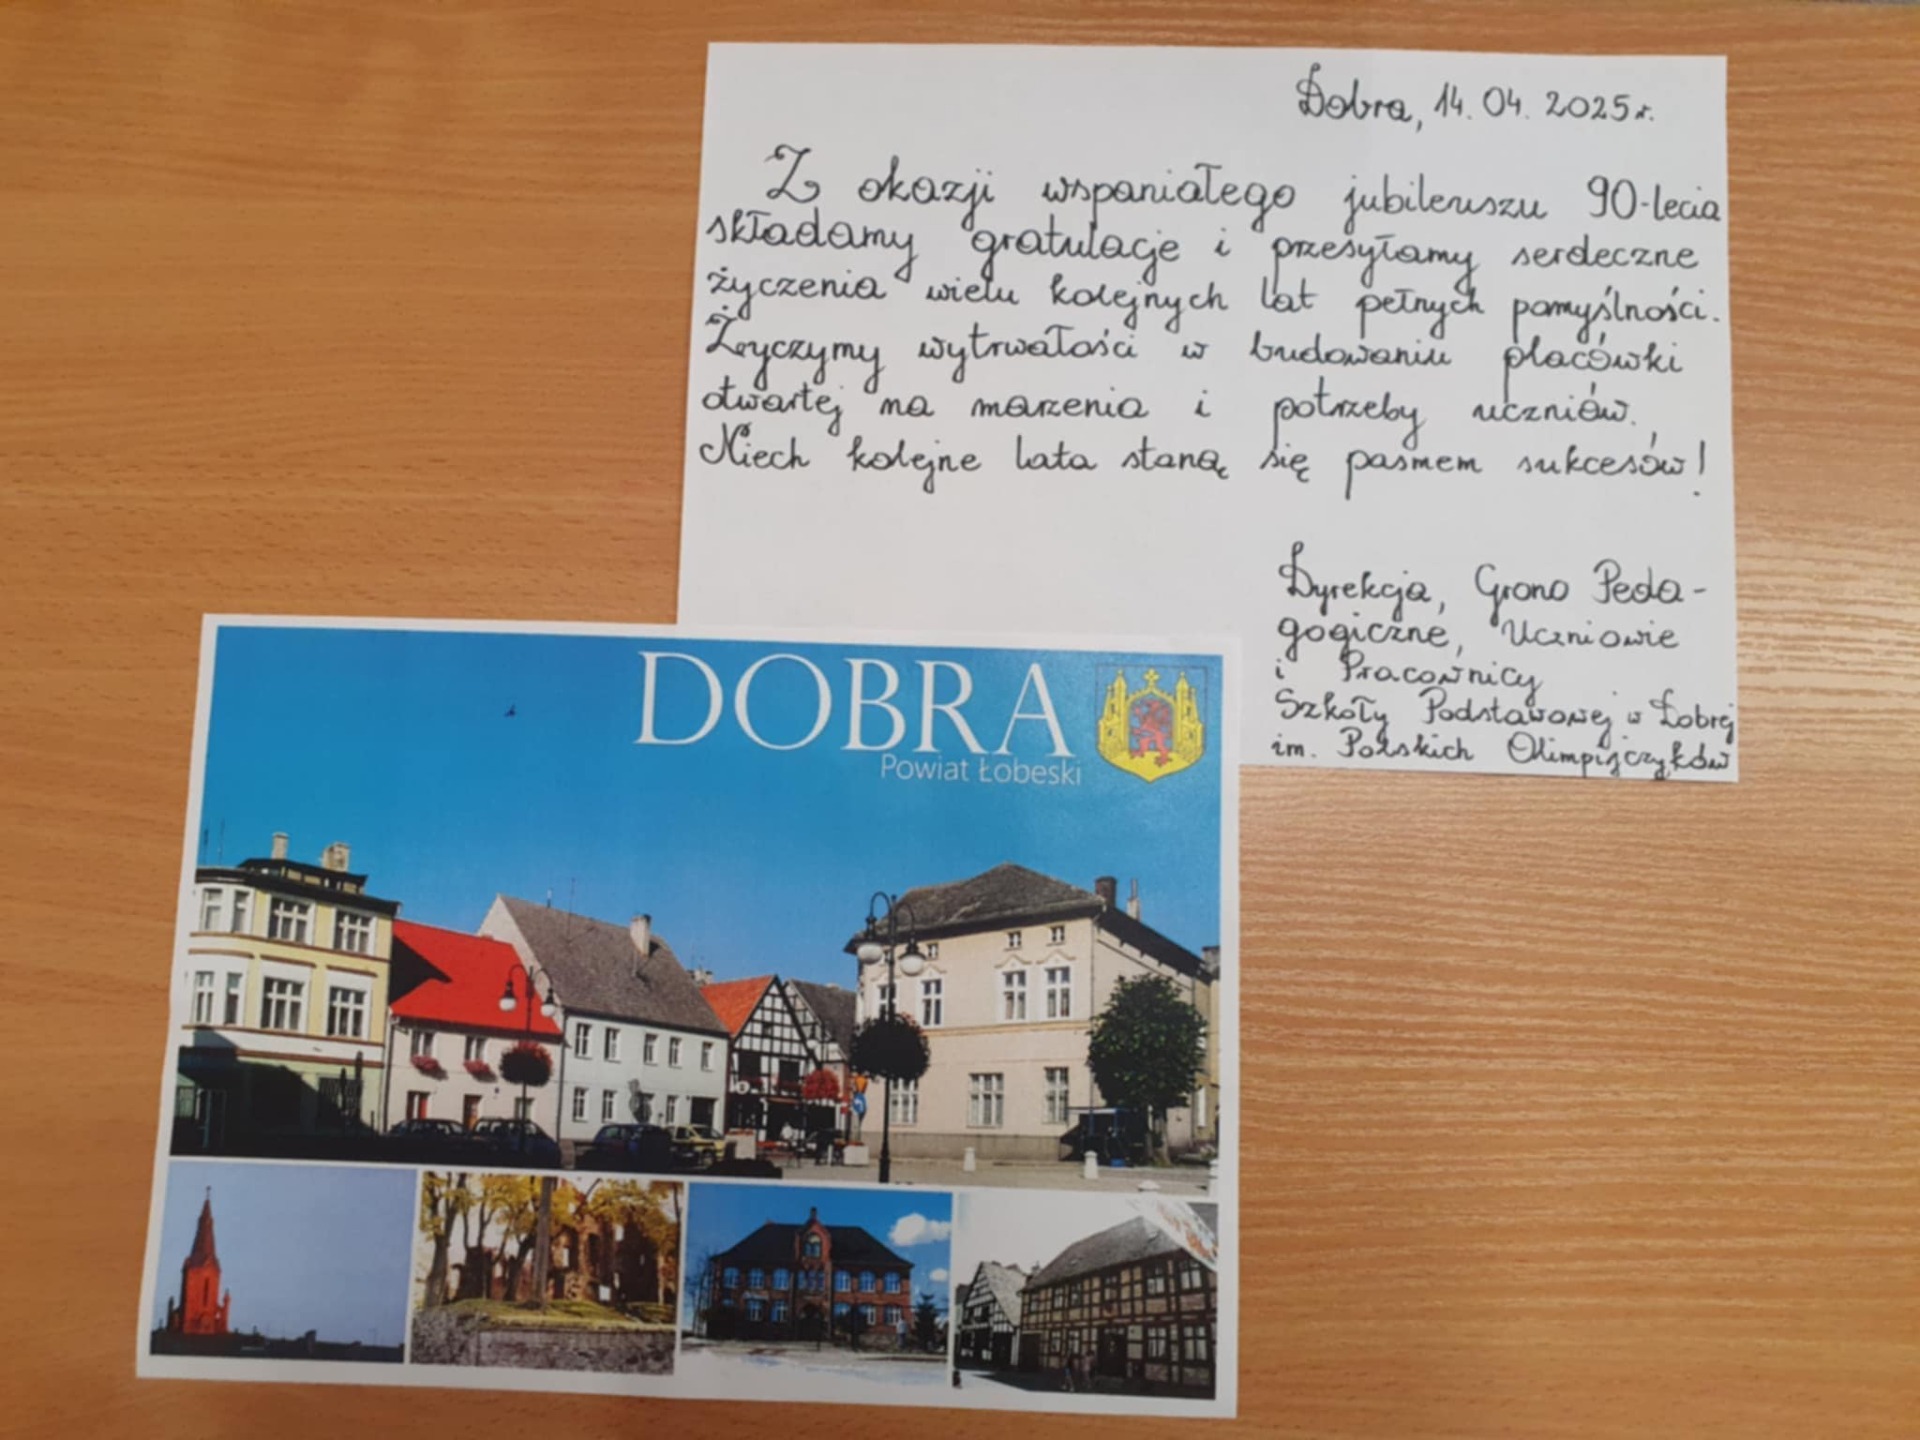 Dobra, 14.04.2025r.
Z okazji wspaniałego jubileuszu 90-lecia
składamy gratulacje i przesyłamy serdeczne
życzenia wielu kolejnych lat pełnych pomyślności.
Życzymy wytrwałości w budowaniu placówki
otwartej na marzenia i potrzeby uczniów.
Niech kolejne lata staną się pasmem sukcesów!
Dyrekcja, Grono Peda-
gogiczne, Uczniowie
i Pracownicy
Szkoły Podstawowej w Dobrej
im. Polskich Olimpijczyków
DOBRA
Powiat Łobeski